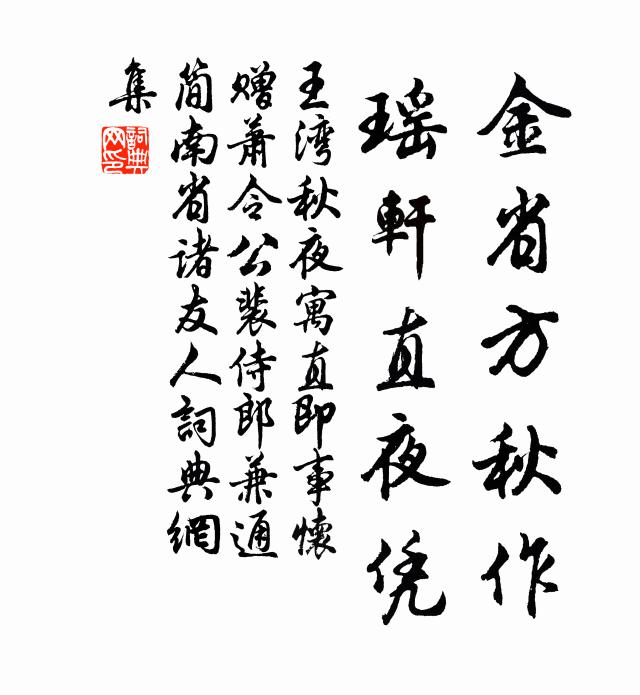 金省方秋作
瑶軒直夜凭
王湾秋夜寓直即事懷
贈萧令公裴侍郎兼通
简南省诸友人詞典網
集
詞典
网印